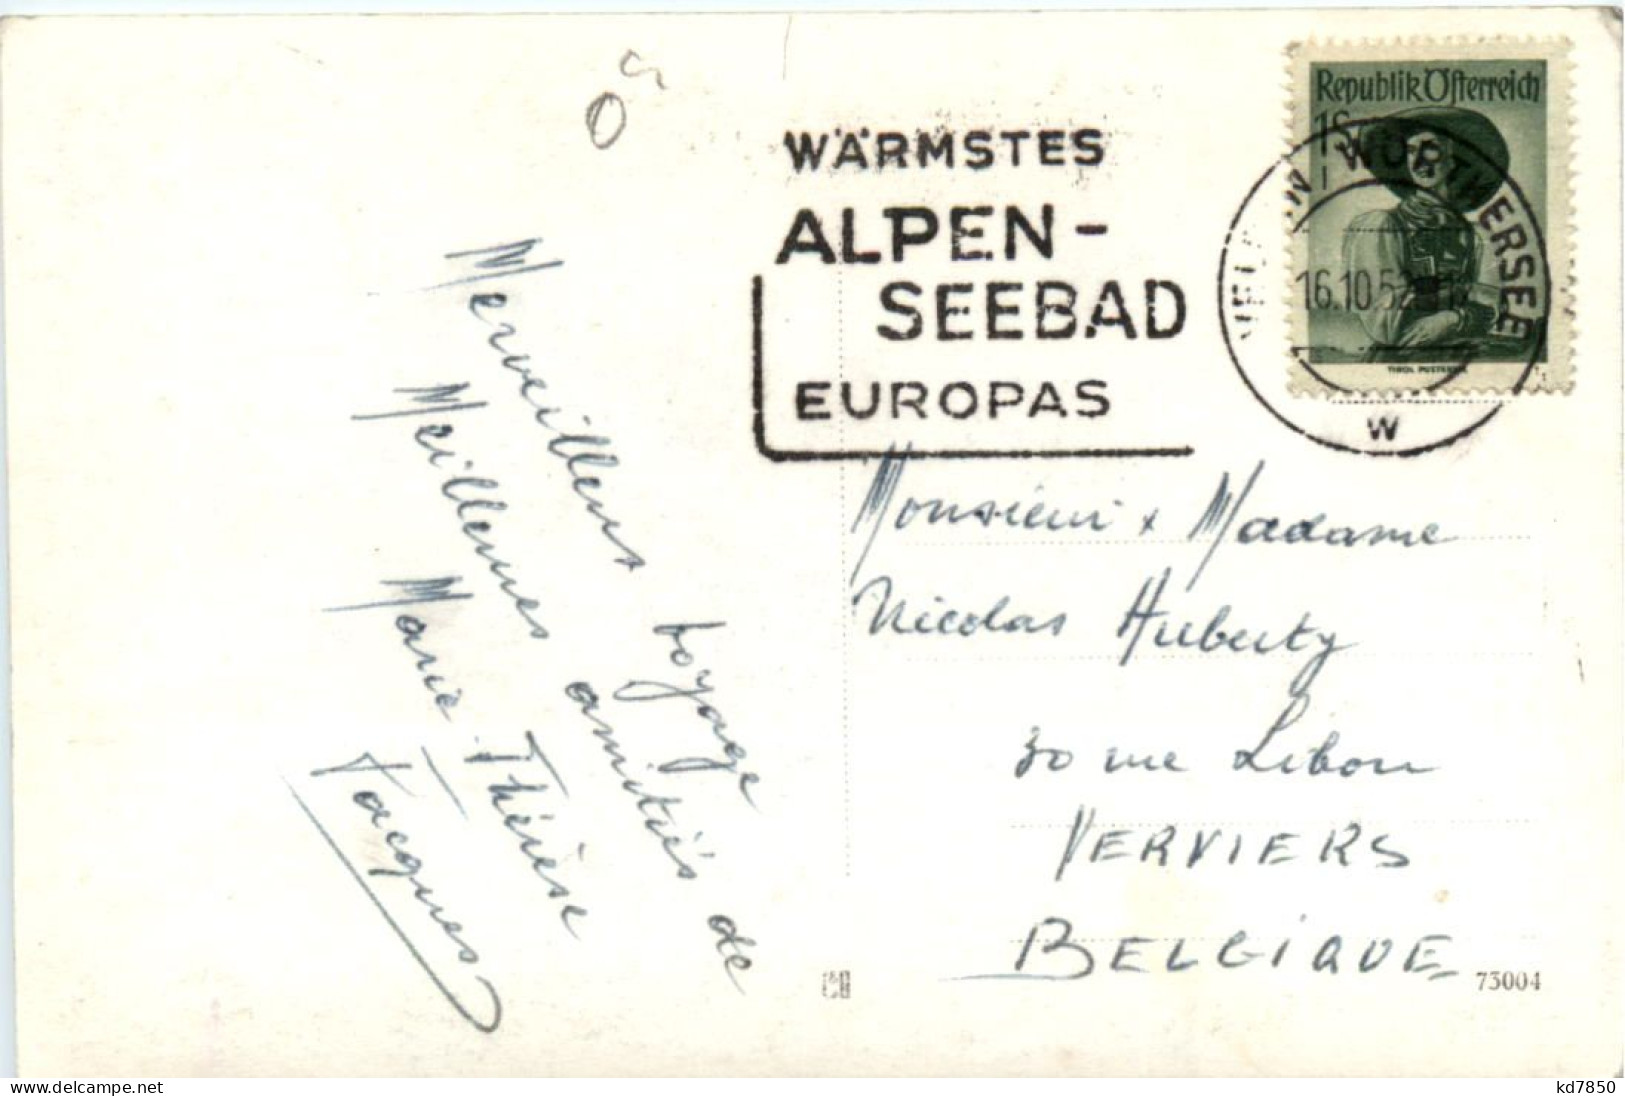 Ö
WÄRMSTES
ALPEN-
SEEBAD
EUROPAS
Republik Österreich
1S
WÖRTHERSEE
16.10.5
TIROL PUSTERTAL
W
Merveilleux voyage
Meilleures amitiés de
Marie-Thérèse
Jacques
Monsieur & Madame
Nicolas Huberty
30 rue Libon
VERVIERS
BELGIQUE
73004
www.delcampe.net
kd7850